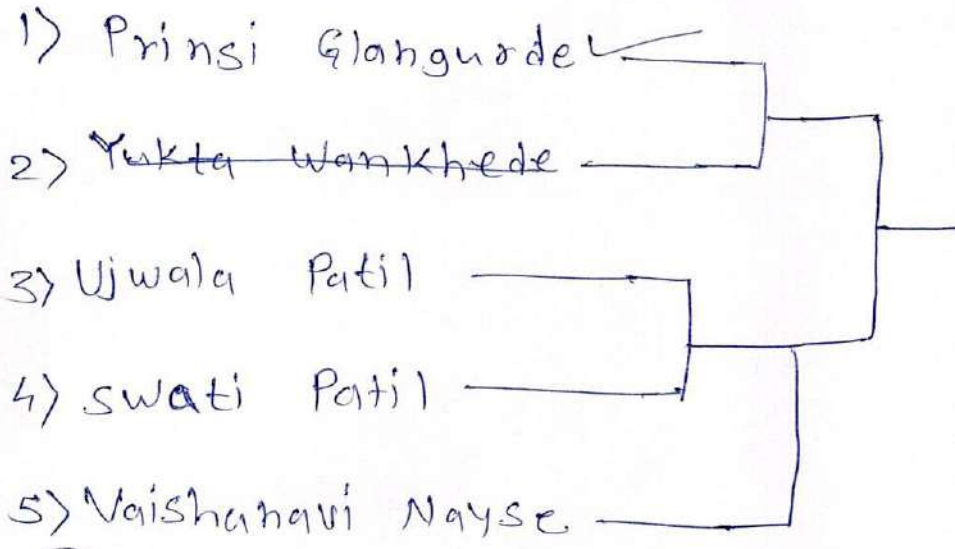 1) Prinsi Glangurde
2) Yukta Wankhede
3) Ujwala Patil
4) Swati Patil
5) Vaishanavi Nayse